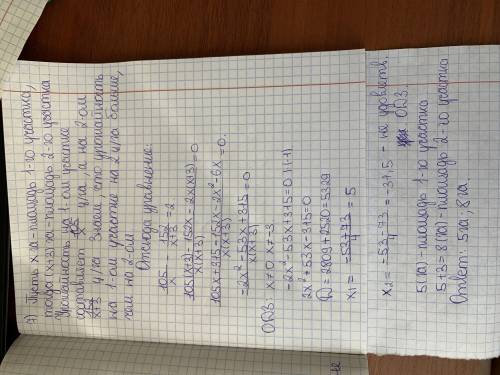 7) Пусть x га-площадь 1-го участка,
тогда (x+3)га-площадь 2-го участка
Урожайность на 1-ом участке
составляет 105/x ц/га, а на 2-ом
152/x+3 ц/га. Зная, что урожайность
на 1-ом участке на 2 ц/га больше,
чем на 2-ом.
Отсюда уравнение:
105/x - 152/x+3 = 2
105(x+3)-152x-2x(x+3)/x(x+3) = 0
105x+315-152x-2x²-6x/x(x+3) = 0.
-2x²-53x+315/x(x+3) = 0
ОДЗ: x≠0 x≠-3
-2x²-53x+315=0 |(-1)
2x²+53x-315=0
D = 2809+2520=5329
x₁ = -53+73/4 = 5
x₂ = -53-73/4 = -31,5 - не удовлетв.
ОДЗ.
5(га)-площадь 1-го участка
5+3=8(га)-площадь 2-го участка
Ответ: 5га; 8га.